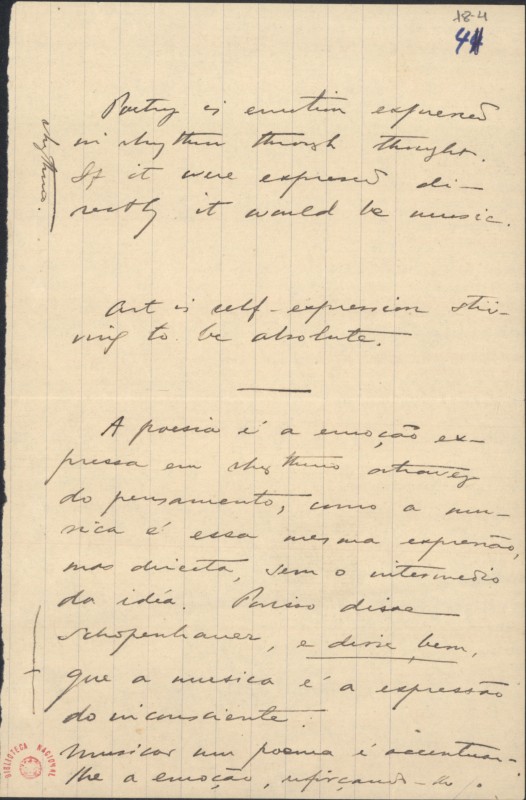 18-4
4
Poetry is emotion expressed
in rhythm through thought.
If it were expressed di-
rectly it would be music.
rhythmo.
Art is self-expression stri-
ving to be absolute.
A poesia é a emoção ex-
pressa em rhythmo atravez
do pensamento, como a mu-
sica é essa mesma expressão,
mas directa, sem o intermedio
da idéa. Porisso disse
Schopenhauer, e disse bem,
que a musica é a expressão
do inconsciente.
Musicar um poema é accentuar-
lhe a emoção, reforçando-lhe
BIBLIOTECA NACIONAL